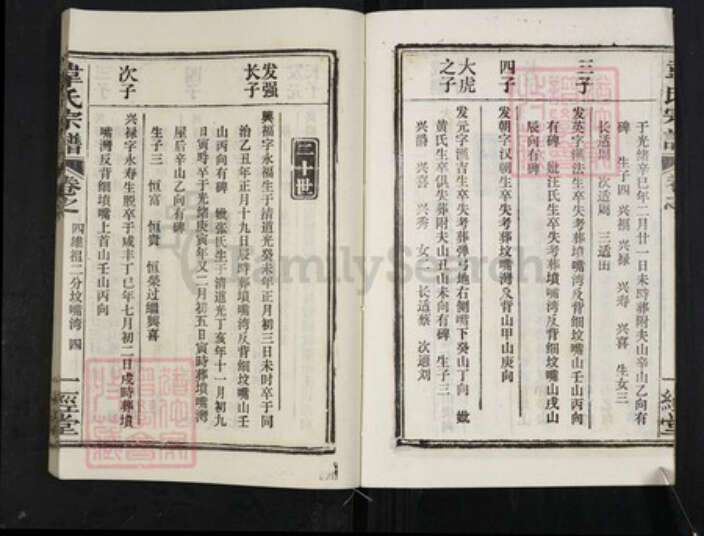 韋氏宗譜
一經堂
于光緒辛巳年二月廿一日未時葬附夫山辛山乙向有
碑 生子四 兴福 兴禄 兴寿 兴喜 生女三
长适周 次适周 三适田
三子
发英字楳法生卒失考葬墳嘴湾及背细坟嘴山壬山丙向
有碑 妣汪氏生卒失考葬墳嘴湾反背细坟嘴山戌山
辰向有碑
四子
发朝字汉朝生卒失考葬坟嘴湾及背山甲山庚向
大虎
之子
发元字滙吉生卒失考葬弹弓地右侧嘴下癸山丁向 妣
黄氏生卒俱失葬附夫山丑山未向有碑 生子三
兴爵 兴喜 兴秀 女二 长适蔡 次适刘
三十世
发强
长子
興福字永福生于清道光癸未年正月初三日未时卒于同
治乙丑年正月十九日辰時葬墳嘴湾反背细墳嘴山壬
山丙向有碑 妣张氏生于清道光丁亥年十一月初九
日寅時卒于光緒庚寅年又二月初五日寅時葬墳嘴湾
屋后辛山乙向有碑
生子三 恒富 恒貴 恒榮过繼興喜
次子
兴禄字永寿生殁卒于咸丰丁巳年七月初二日戌時葬墳
嘴灣反背细墳嘴上首山壬山丙向
韋氏宗譜
卷之一
四維祖二分坟嘴湾 四
一經堂
FamilySearch